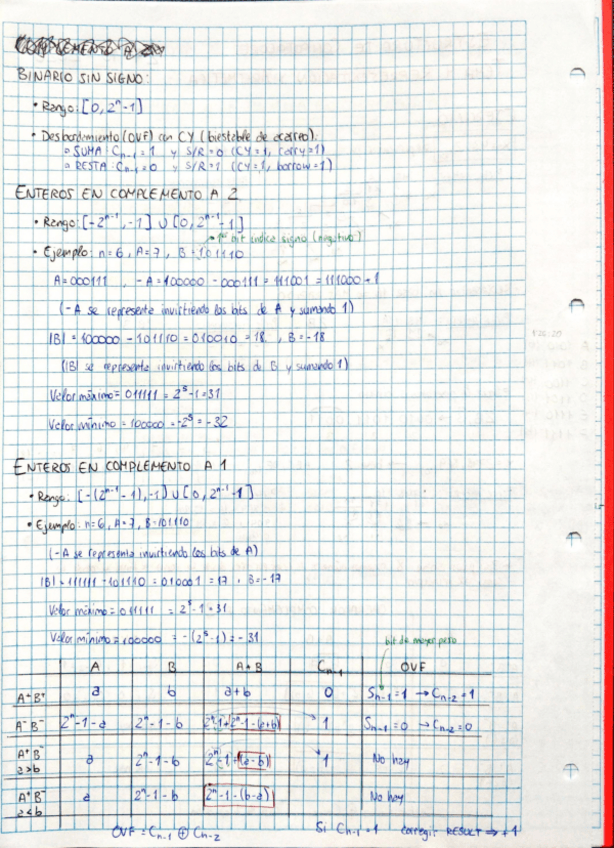 BINARIO SIN SIGNO:
• Rango: [0, 2ⁿ-1]
• Desbordamiento (OVF) con CY (biestable de acarreo).
▫ SUMA: Cn-1 = 1 y S/R = 0 (CY=1, carry=1)
▫ RESTA: Cn-1 = 0 y S/R=1 (CY=1, borrow=1)
ENTEROS EN COMPLEMENTO A 2
• Rango: [-2ⁿ⁻¹, -1] ∪ [0, 2ⁿ⁻¹-1]
1er bit indice signo (negativo)
• Ejemplo: n=6, A=7, B=101110
A=000111 , -A=1000000 - 000111 = 111001 = 111000 + 1
(-A se representa invirtiendo los bits de A y sumando 1)
|B| = 1000000 - 101110 = 010010 = 18 , B=-18
(|B| se representa invirtiendo los bits de B y sumando 1)
Valor máximo = 011111 = 2⁵-1 = 31
Valor mínimo = 100000 = -2⁵ = -32
ENTEROS EN COMPLEMENTO A 1
• Rango: [-(2ⁿ⁻¹-1), -1] ∪ [0, 2ⁿ⁻¹-1]
• Ejemplo: n=6, A=7, B=101110
(-A se representa invirtiendo los bits de A)
|B| = 111111 - 101110 = 010001 = 17 , B=-17
Valor máximo = 011111 = 2⁵-1 = 31
Valor mínimo = 100000 = -(2⁵-1) = -31
bit de mayor peso
A B A+B Cn-1 OVF
A⁺B⁺ a b a+b 0 Sn-1=1 → Cn-2=1
A⁻B⁻ 2ⁿ-1-a 2ⁿ-1-b 2ⁿ-1+2ⁿ-1-(a+b) 1 Sn-1=0 → Cn-2=0
A⁺B⁻ a>b a 2ⁿ-1-b 2ⁿ-1+(a-b) 1 No hay
A⁺B⁻ a<b a 2ⁿ-1-b 2ⁿ-1-(b-a) No hay
OVF = Cn-1 ⊕ Cn-2 Si Cn-1=1 corregir RESULT → +1